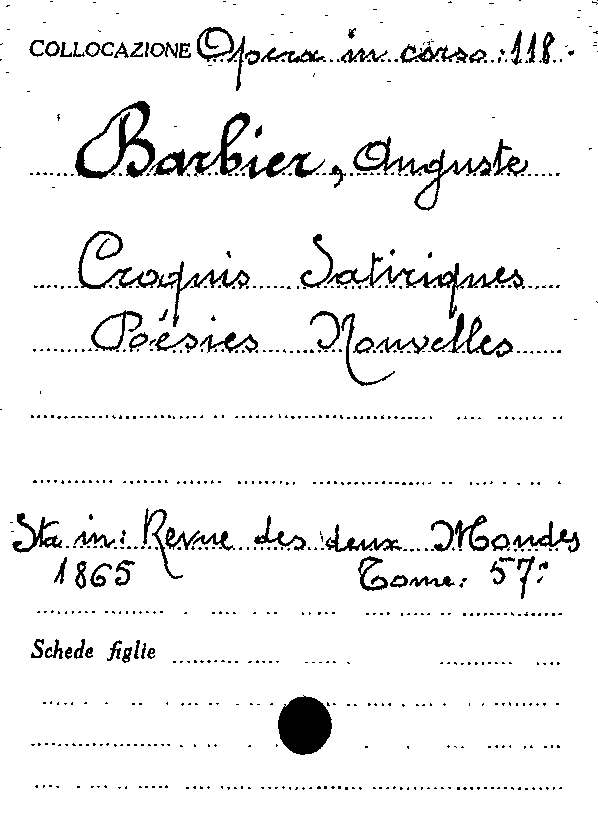 COLLOCAZIONE Opera in corso: 118.
Barbier, Auguste
Croquis Satiriques
Poésies Nouvelles
Sta in: Revue des deux Mondes
1865 Tome: 57:
Schede figlie